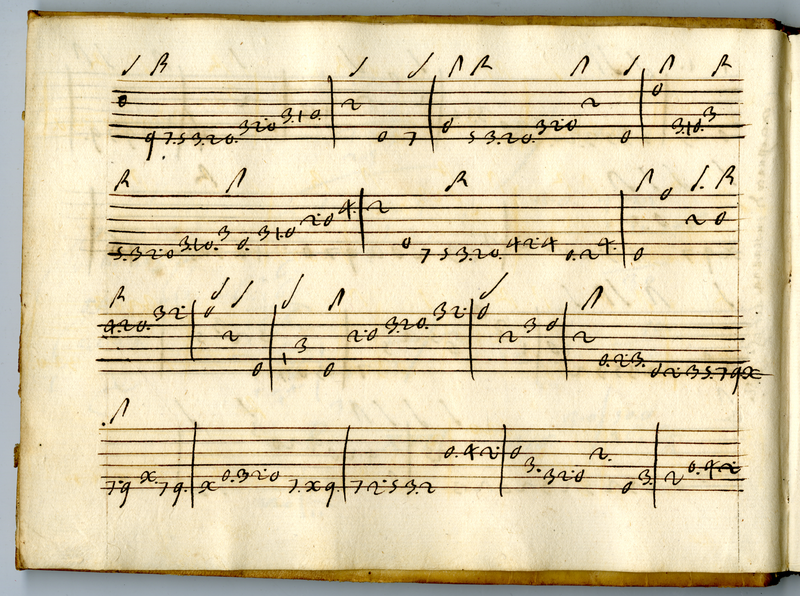 0 9 7.5 3.20. 320 3.10. | 2 0 7 | 0 5 3.20. 320 2 0 | 0 3.10. 3
5.320 3.10. 3 0. 3.10 2.0 4. | 2 0 7 5 3.20. 4.2.4 0.2 4. | 0 0 2 0
4.20. 32. | 0 2 0 | 1 3 0 2.0 3.20. 32. | 0 2 3 0 | 2 0.23. 0 2 3 5.7 9 x
7.9 x. 79. | x 0.320 7.x9. | 72.53.2 0.42. | 0 3. 320 2. 0 3. | 2 0.42